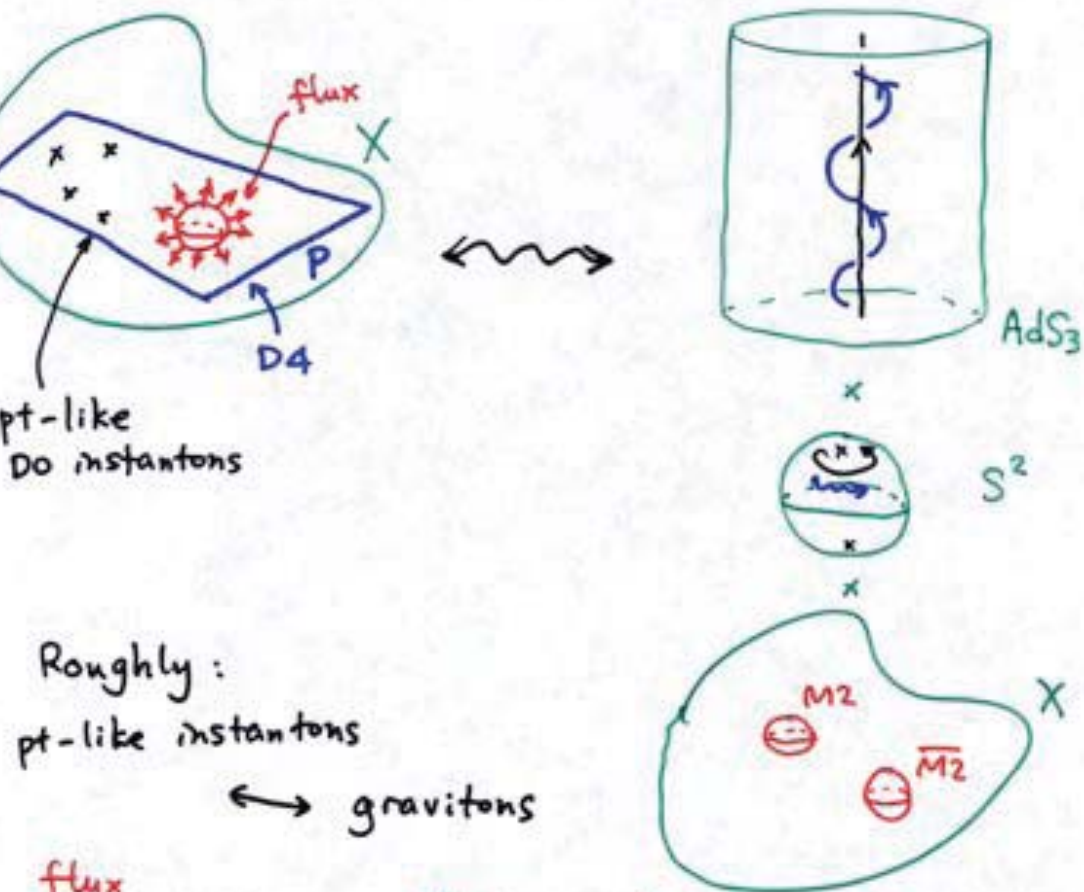 flux
X
P
D4
pt-like
D0 instantons
AdS₃
×
S²
×
Roughly:
pt-like instantons
↔ gravitons
flux
M2
M̅2̅
X